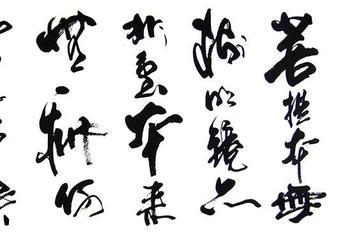 菩提本無
樹明鏡亦
非臺本來
無一物何